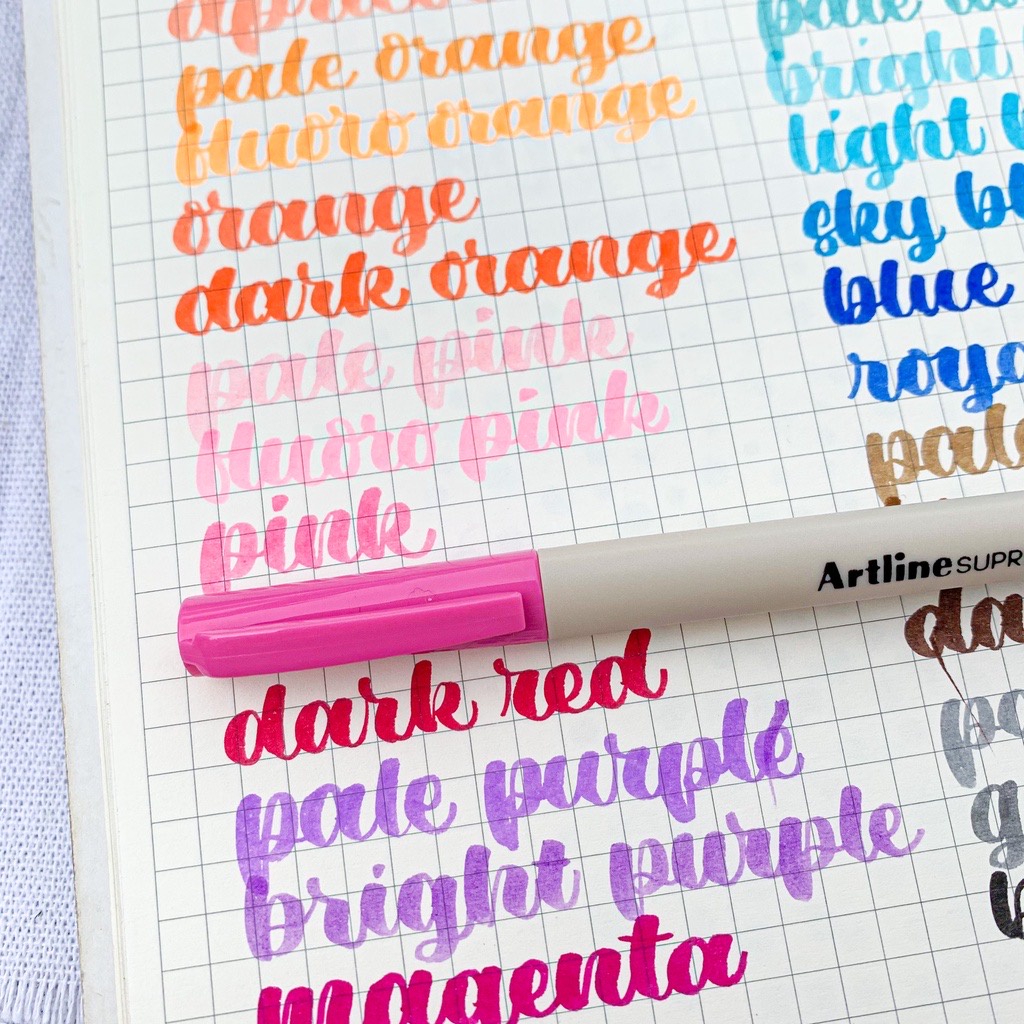 apricot
pale orange
fluoro orange
orange
dark orange
pale pink
fluoro pink
pink
dark red
pale purple
bright purple
magenta
pale
bright
light
sky
blue
pale
Artline SUPR